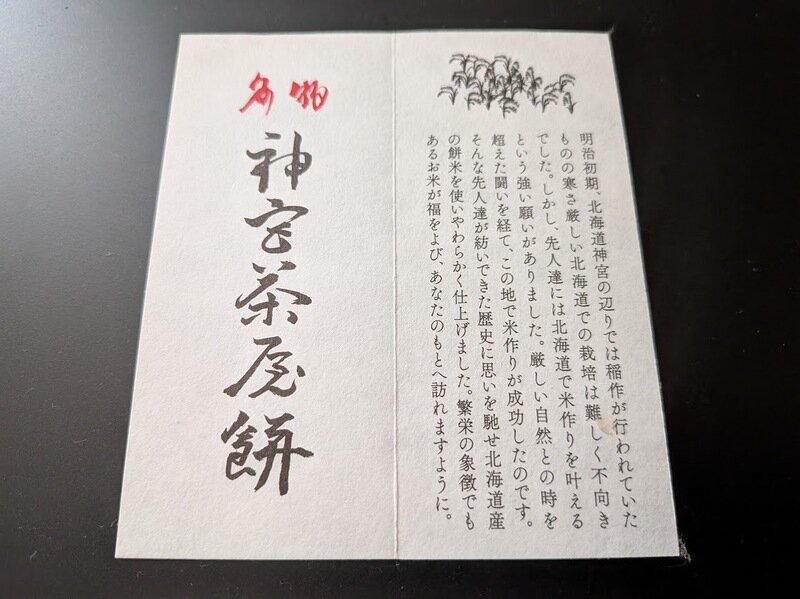 明治初期、北海道神宮の辺りでは稲作が行われていた
ものの寒さ厳しい北海道での栽培は難しく不向き
でした。しかし、先人達には北海道で米作りを叶える
という強い願いがありました。厳しい自然との時を
超えた闘いを経て、この地で米作りが成功したのです。
そんな先人達が紡いできた歴史に思いを馳せ北海道産
の餅米を使いやわらかく仕上げました。繁栄の象徴でも
あるお米が福をよび、あなたのもとへ訪れますように。
名物
神宮茶屋餅